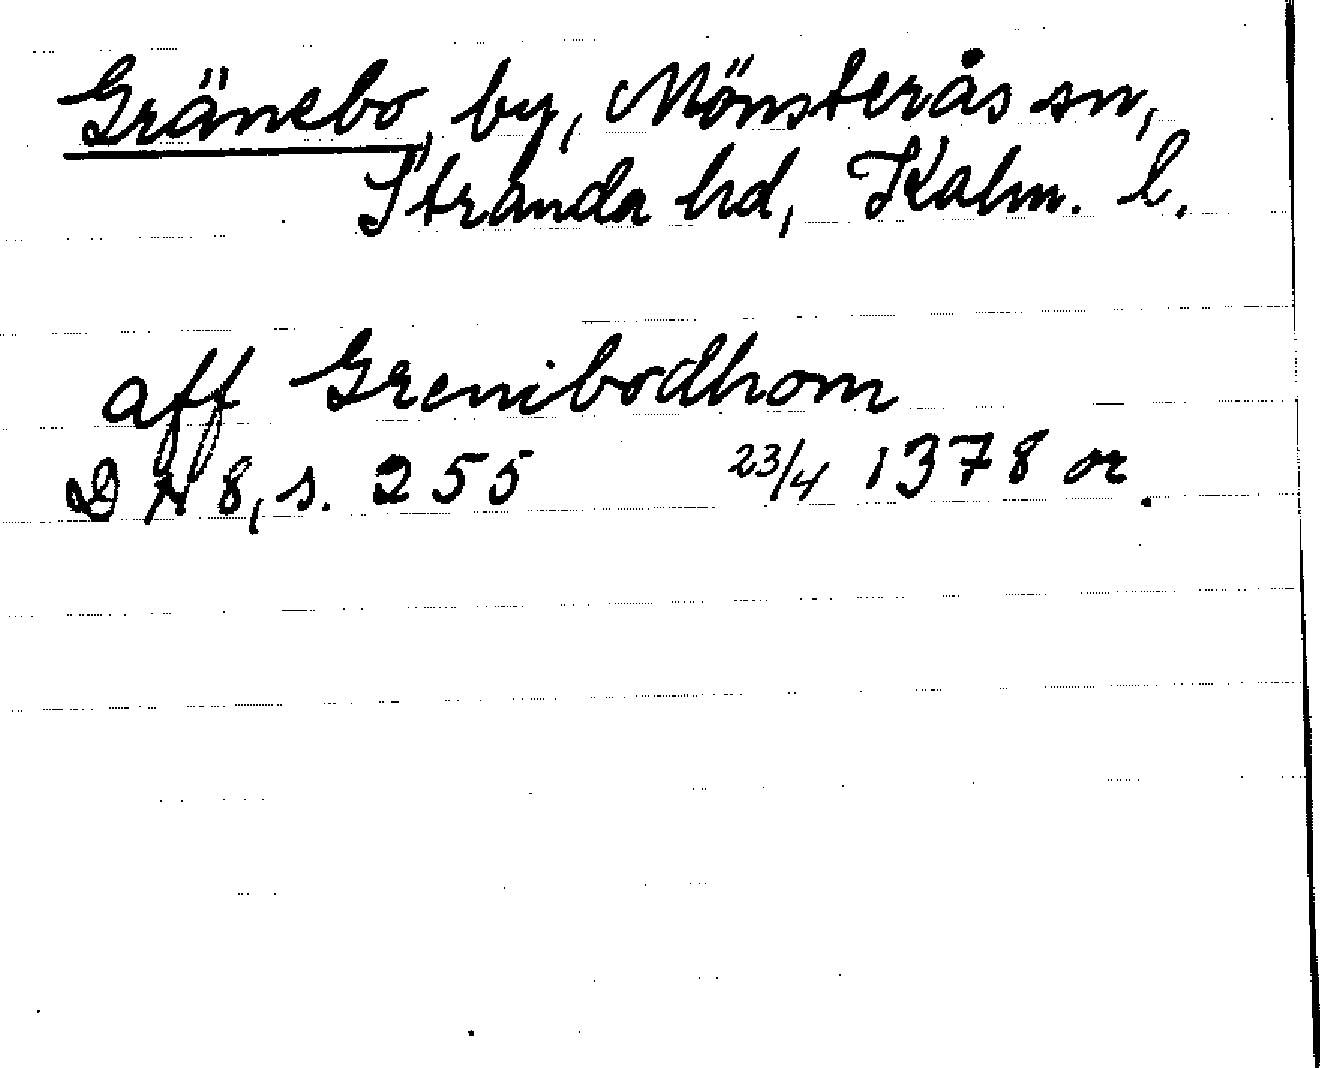 Gränebo, by, Mönsterås sn,
Stranda hd, Kalm. l.
aff Grenibodhom
DN 8, s. 255 23/4 1378 or.